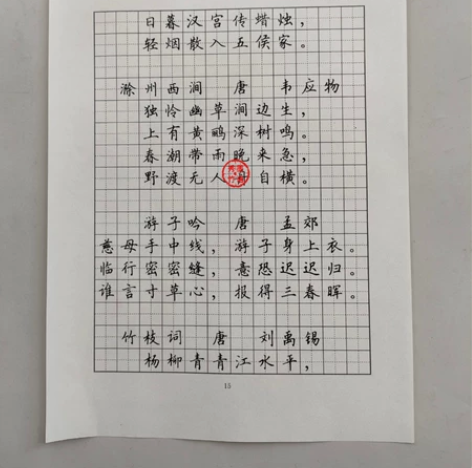 日暮汉宫传蜡烛，
轻烟散入五侯家。
滁州西涧 唐 韦应物
独怜幽草涧边生，
上有黄鹂深树鸣。
春潮带雨晚来急，
野渡无人 自横。
游子吟 唐 孟郊
慈母手中线，游子身上衣。
临行密密缝，意恐迟迟归。
谁言寸草心，报得三春晖。
竹枝词 唐 刘禹锡
杨柳青青江水平，
15